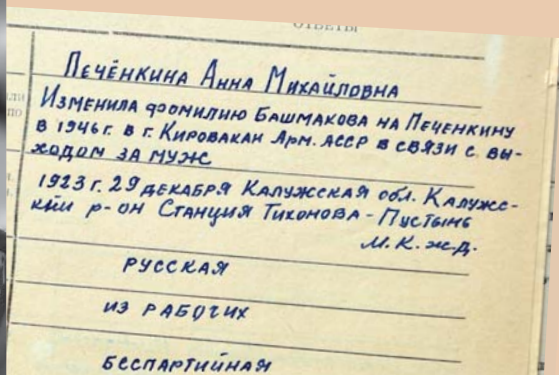 ОТВЕТЫ
Печёнкина Анна Михайловна
Изменила фомилию Башмакова на Печенкину
в 1946г. в г. Кировакан Арм. АССР в связи с вы-
ходом за муж
1923 г. 29 декабря Калужская обл. Калужс-
кий р-он Станция Тихонова-Пустынь
М.К.ж.д.
русская
из рабочих
беспартийная